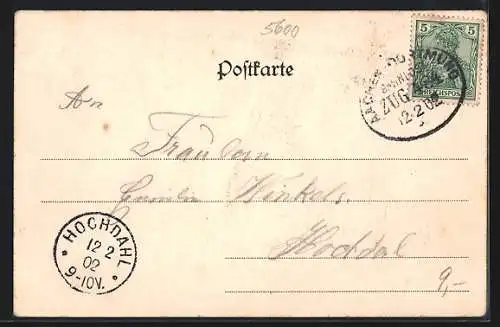 5600
5 5
REICHSPOST
AACHEN-DORTMUND
BAHNPOST
ZUG
12 2 02
Postkarte
An
Fräulein
Winkels,
Hochdal
HOCHDAHL
12 2
02
9-10V.
9,-